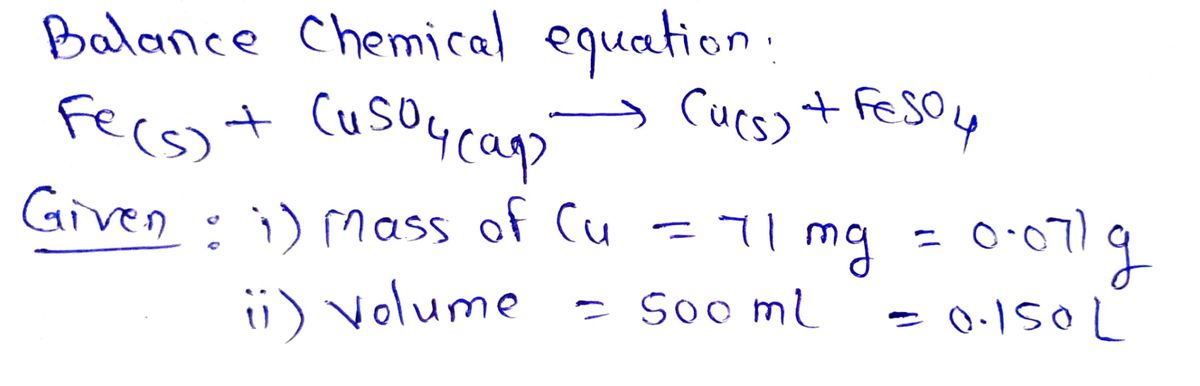 Balance Chemical equation:
Fe(s) + CuSO4(aq) → Cu(s) + FeSO4
Given : i) Mass of Cu = 71 mg = 0.071 g
ii) Volume = 500 ml = 0.150 L